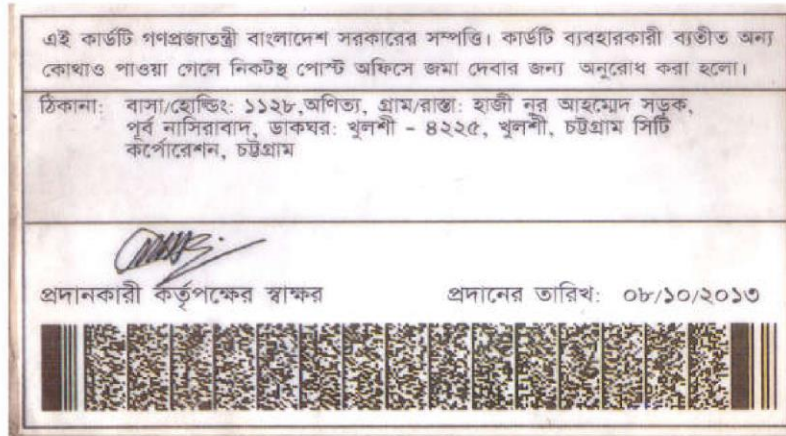 এই কার্ডটি গণপ্রজাতন্ত্রী বাংলাদেশ সরকারের সম্পত্তি। কার্ডটি ব্যবহারকারী ব্যতীত অন্য
কোথাও পাওয়া গেলে নিকটস্থ পোস্ট অফিসে জমা দেবার জন্য অনুরোধ করা হলো।
ঠিকানা: বাসা/হোল্ডিং: ১১২৮,অণিত্য, গ্রাম/রাস্তা: হাজী নুর আহম্মেদ সড়ক,
পূর্ব নাসিরাবাদ, ডাকঘর: খুলশী - ৪২২৫, খুলশী, চট্টগ্রাম সিটি
কর্পোরেশন, চট্টগ্রাম
প্রদানকারী কর্তৃপক্ষের স্বাক্ষর প্রদানের তারিখ: ০৮/১০/২০১৩